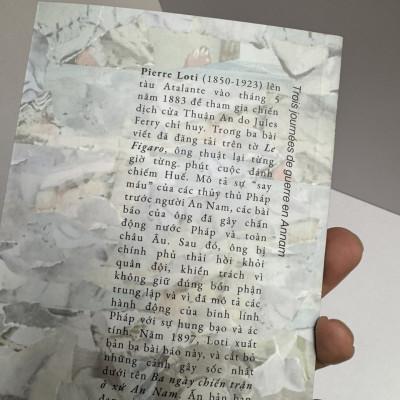 Pierre Loti (1850-1923) lên
tàu Atalante vào tháng 5
năm 1883 để tham gia chiến
dịch cửa Thuận An do Jules
Ferry chỉ huy. Trong ba bài
viết đã đăng tải trên tờ Le
Figaro, ông thuật lại từng
giờ từng phút cuộc đánh
chiếm Huế. Mô tả sự "say
máu" của các thủy thủ Pháp
trước người An Nam, các bài
báo của ông đã gây chấn
động nước Pháp và toàn
châu Âu. Sau đó, ông bị
chính phủ thải hồi khỏi
quân đội, khiển trách vì
không giữ đúng bổn phận
trung lập và vì đã mô tả các
hành động của binh lính
Pháp với sự hung bạo và ác
tính. Năm 1897, Loti xuất
bản ba bài báo này, và cắt bỏ
những cảnh gây sốc nhất
dưới tên Ba ngày chiến trận
ở xứ An Nam. Ấn bản bạn
Trois journées de guerre en Annam